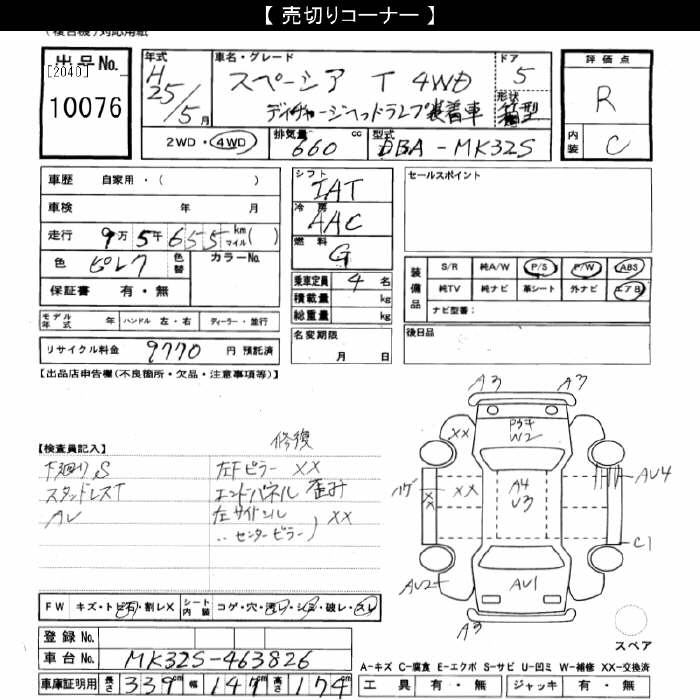 【 売切りコーナー 】
(複合機)対応用紙
出品No.
[2040]
10076
年式 H 25/5 月
車名・グレード
スペーシア T 4WD
ディスチャージヘッドランプ装着車
ドア 5
形状 箱型
2WD・4WD
排気量 660 cc
型式 DBA-MK32S
評価点
R
内装 C
車歴 自家用・( )
車検 年 月
走行 9万5千655 km マイル( )
色 ピンク 色替 カラーNo.
保証書 有・無
モデル年式 年 ハンドル 左・右 ディーラー・並行
リサイクル料金 9770 円 預託済
シフト IAT
冷房 AAC
燃料 G
乗車定員 4 名
積載量 kg
総重量 kg
名変期限
月 日
セールスポイント
装備品
S/R 純A/W P/S P/W ABS
純TV 純ナビ 革シート 外ナビ エアB
ナビ型番:
後日品
【出品店申告欄(不良箇所・欠品・注意事項等)】
【検査員記入】
下廻り S
AU
修復
左Fピラー XX
エンドパネル 歪み
左サイドシル
〃 センターピラー
XX
A3
A3
XX
W2
XX
XX
A4
U3
AU4
C1
AU2
AU1
A3
スペア
FW キズ・トビ石・割レX シート内装 コゲ・穴・汚レ・シミ・破レ・スレ
登録No.
車台No. MK32S-463826
車庫証明用 長さ 339 cm 幅 147 cm 高さ 174 cm
A-キズ C-腐食 E-エクボ S-サビ U-凹ミ W-補修 XX-交換済
工具 有・無 ジャッキ 有・無